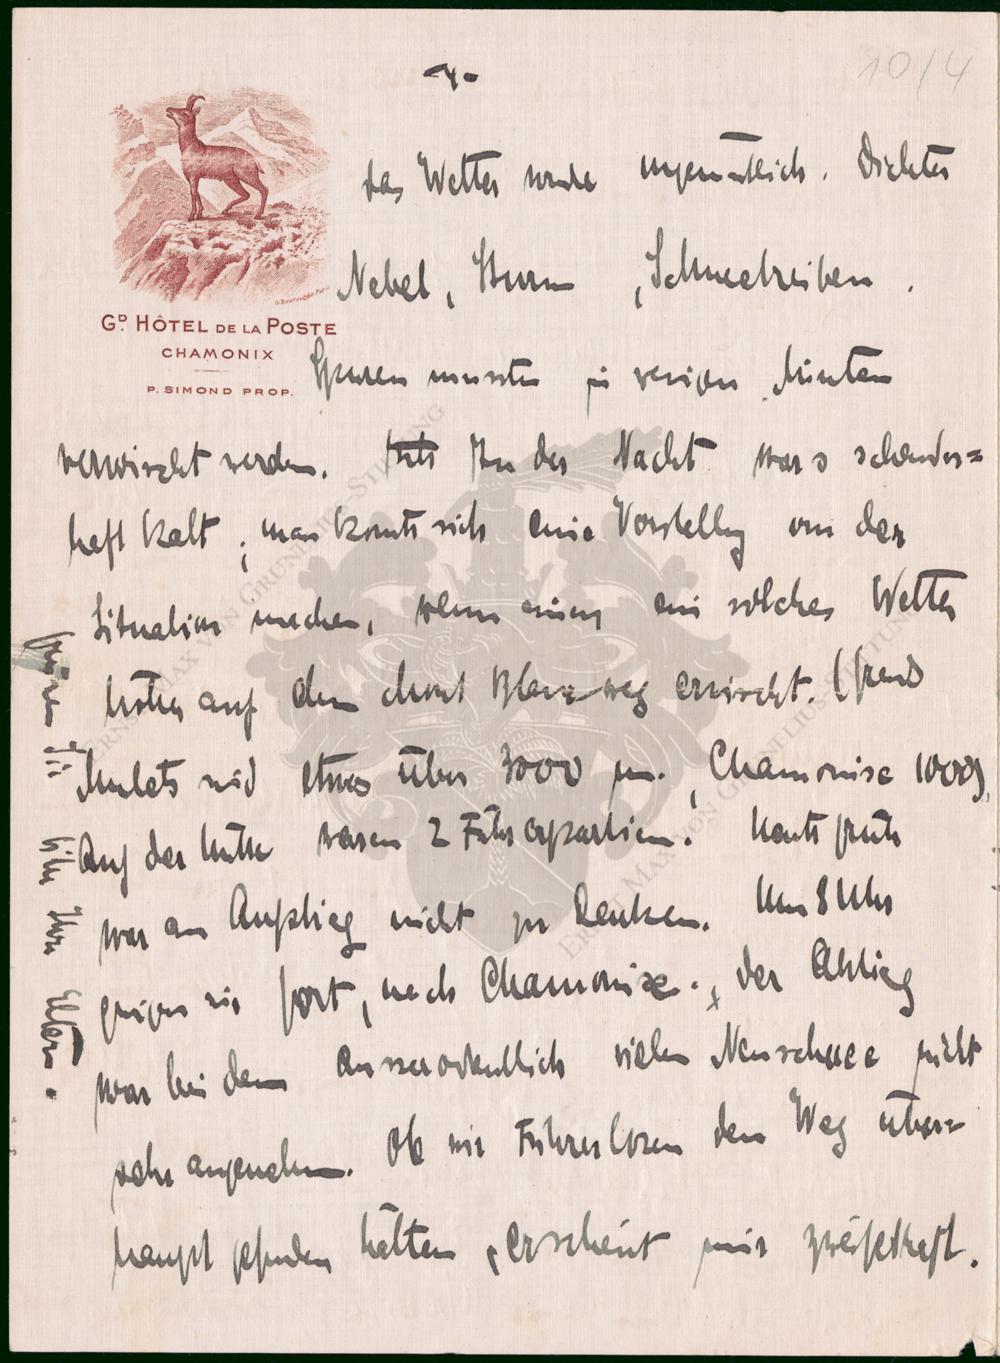 4.
10/4
G. Bourgogne
GD. HÔTEL DE LA POSTE
CHAMONIX
P. SIMOND PROP.
das Wetter wurde ungemütlich. Dichter
Nebel, Sturm, Schneetreiben.
Spuren mussten in wenigen Minuten
verwischt werden. In der Nacht war's schauder=
haft kalt; man konnte sich eine Vorstellg von der
Situation machen, wenn einen ein solches Wetter
höher auf dem Mont Blancweg erwischt. (Grand
Mulets sind etwas über 3000 m., Chamonix 1000)
Auf der Hütte waren 2 Führerpartien. Heute früh
war an Aufstieg nicht zu denken. Um 8 Uhr
gingen wir fort, nach Chamonix., der Abstieg
war bei dem ausserordentlich vielen Neuschnee nicht
sehr angenehm. Ob wir Führerlosen den Weg über=
haupt gefunden hätten, erscheint mir zweifelhaft.
grüssen Sie bitte Ihre Eltern.
ERNST MAX VON GRUNELIUS-STIFTUNG
ERNST MAX VON GRUNELIUS-STIFTUNG